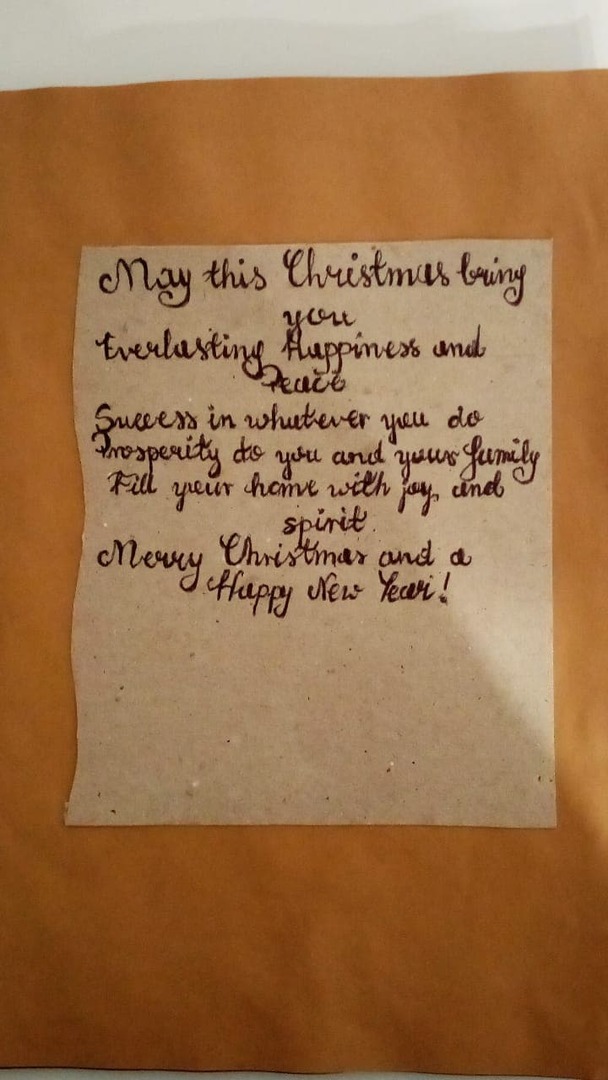 May this Christmas bring
you
Everlasting Happiness and
Peace
Success in whatever you do
Prosperity to you and your family
Fill your home with joy, and
spirit.
Merry Christmas and a
Happy New Year!